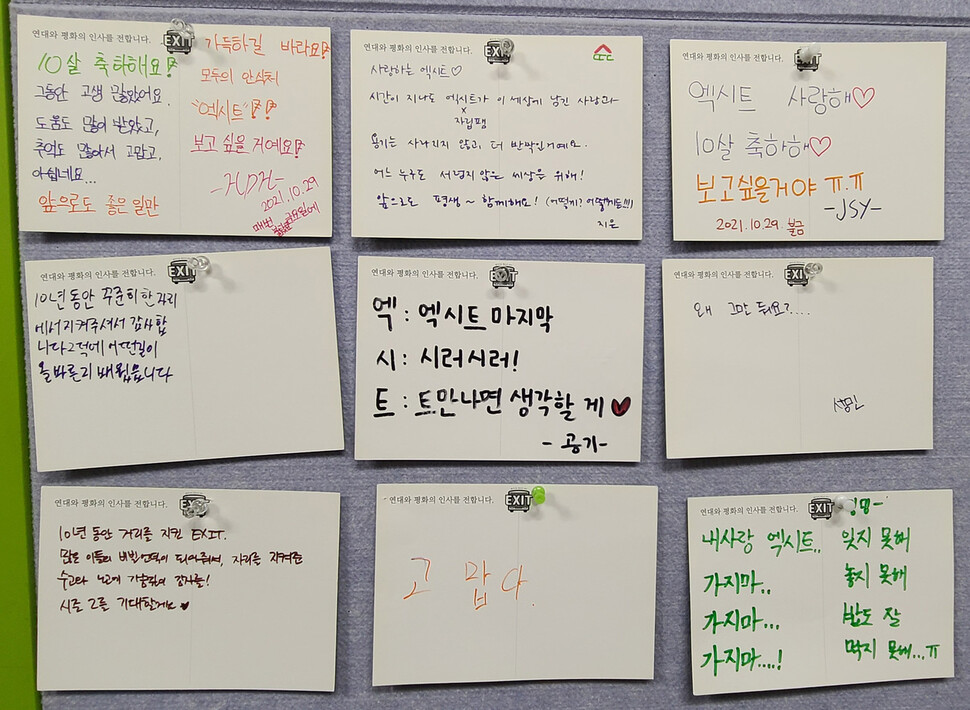 연대와 평화의 인사를 전합니다.
EXIT
10살 축하해요!
그동안 고생 많았어요.
도움도 많이 받았고,
추억도 많아서 고맙고,
아쉽네요...
앞으로도 좋은 일만
가득하길 바라요!
모두의 안식처
"엑시트"!!
보고 싶을 거예요!
2021.10.29
연대와 평화의 인사를 전합니다.
EXIT
사랑하는 엑시트♡
시간이 지나도 엑시트가 이 세상에 남긴 사랑과
x
자립팸
용기는 사라지지 않고, 더 반짝인거예요.
어느 누구도 서럽지 않은 세상을 위해!
앞으로도 평생~ 함께해요! (어떻게? 어떻게든!!!)
지은
연대와 평화의 인사를 전합니다.
EXIT
엑시트 사랑해♡
10살 축하해♡
보고싶을거야 ㅠ.ㅠ
-JSY-
2021.10.29. 불금
연대와 평화의 인사를 전합니다.
EXIT
10년 동안 꾸준히 한 자리
에서 지켜주셔서 감사합
니다 그덕에 어떤길이
올바른지 배웠습니다
연대와 평화의 인사를 전합니다.
EXIT
엑 : 엑시트 마지막
시 : 시러시러!
트 : 트만나면 생각할 게 ♥
- 공기-
연대와 평화의 인사를 전합니다.
EXIT
왜 그만 둬요?....
성민
연대와 평화의 인사를 전합니다.
EXIT
10년 동안 거리를 지킨 EXIT.
많은 이들의 비빌언덕이 되어줘서, 자리를 지켜준
수고와 노고에 가슴깊이 감사를!
시즌 2를 기대할게요 ♥
연대와 평화의 인사를 전합니다.
EXIT
고 맙 다.
연대와 평화의 인사를 전합니다.
EXIT
내사랑 엑시트..
가지마..
가지마...
가지마....!
잊지 못해
놓지 못해
밥도 잘
먹지 못해...ㅠ